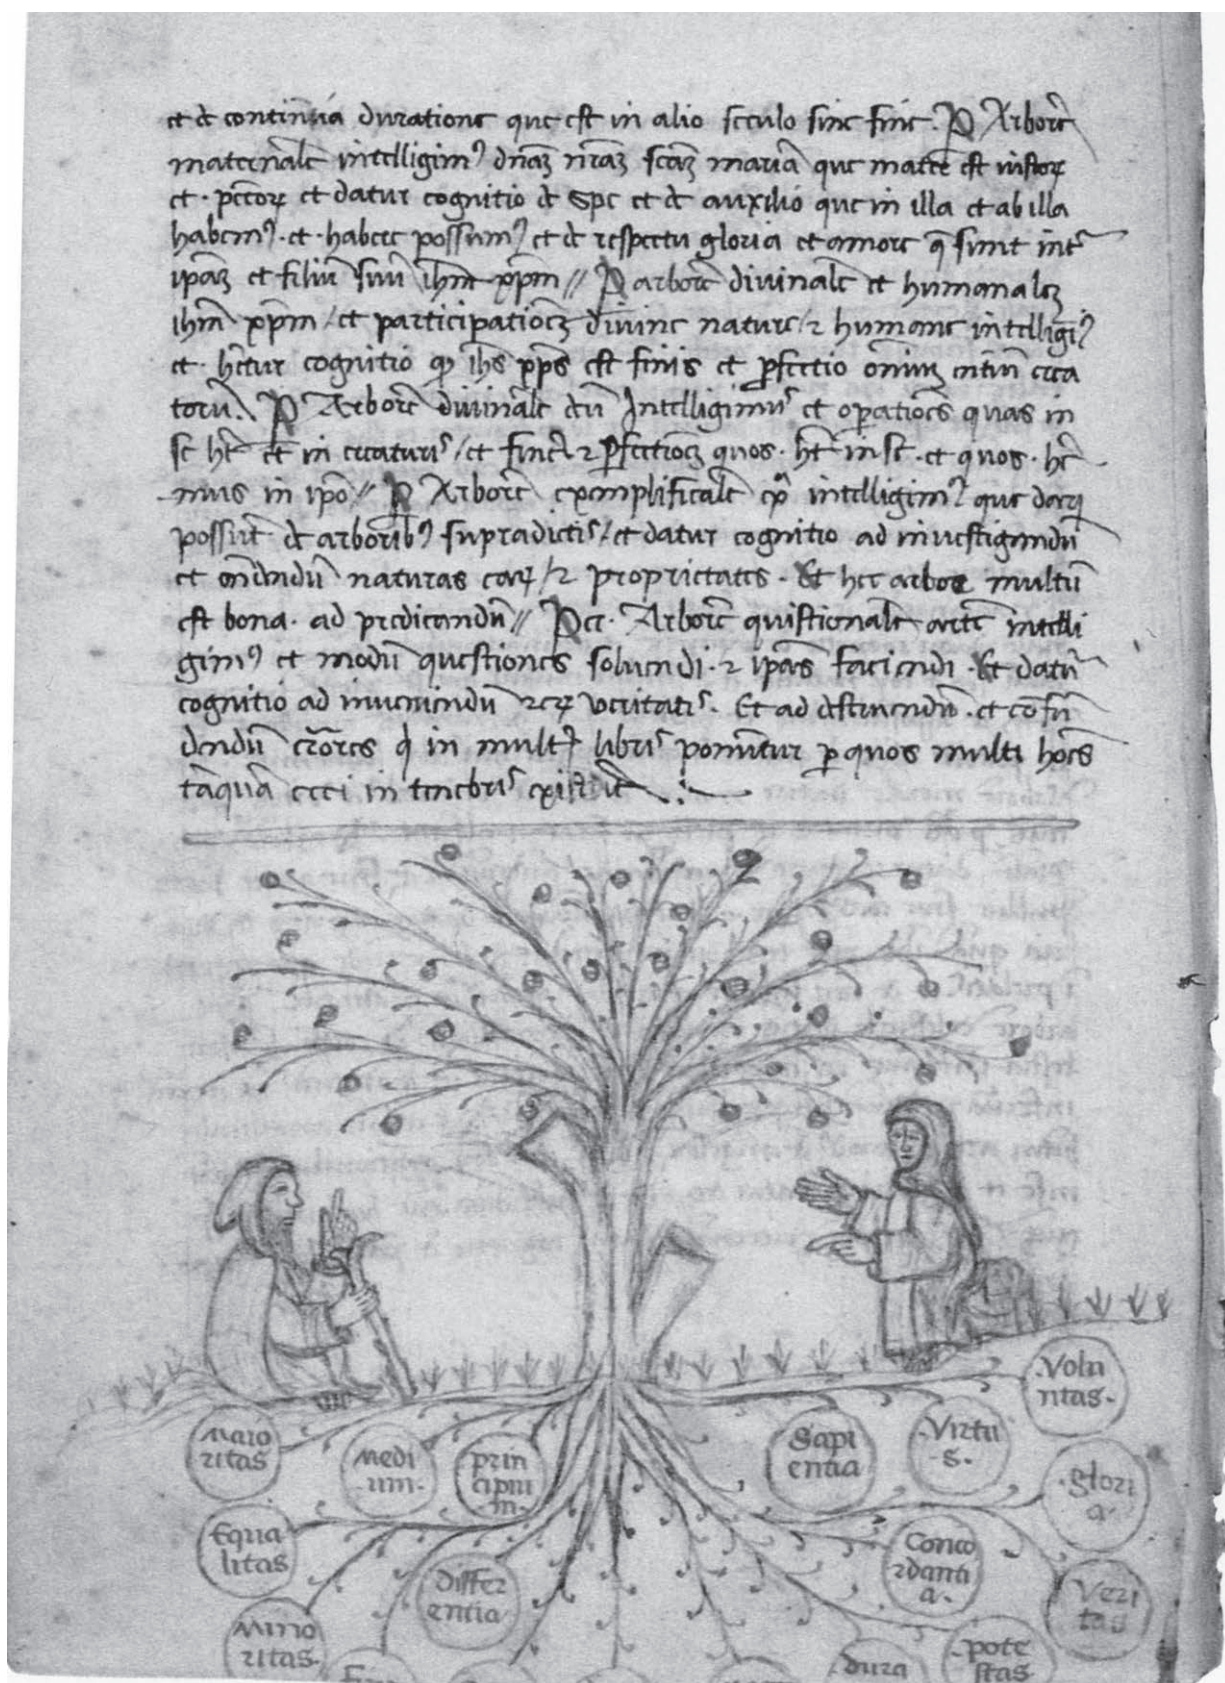 et de continua duratione que est in alio seculo sine fine. P Arborē
maternalē intelligim⁹ dn̄aʒ nr̄aʒ scāʒ mariā que mater est iustoꝝ
et · pctōꝝ et datur cognitio de spe et de auxilio que in illa et ab illa
habem⁹ · et · habere possum⁹ et de respectu gloria et amore q̄ sunt int̄
ipāʒ et filiū suū ihm xp̄m // P arborē diuinalē et humanalēʒ
ihm xp̄m / et participatiōeʒ diuine nature / ⁊ humane intelligi⁹
et · hētur cognitio ꝙ ihs xp̄s est finis et ꝑfectio om̄iuʒ entiū crea
toꝝ. P Arborē diuinalē deū Intelligimus et opatiōes quas in
se hēt et in creaturis / et finē ⁊ ꝑfectiōeʒ quos · hēt in se · et quos · hē
mus in ipō // P Arborē exemplificalē exa intelligim⁹ que dari
possūt de arborib⁹ supradictis / et datur cognitio ad inuestigandū
et ondendū naturas eaꝝ / ⁊ proprietates · Et hec arbor multū
est bona · ad predicandū // Per · Arborē questionalē artē intelli
gim⁹ et modū questiones soluendi · ⁊ ipas faciendi · Et datur
cognitio ad inueniendū reꝝ veritatis · Et ad destruendū · et cōfū
dendū errōres q̄ in multis libris ponūtur ꝑ quos multi hoēs
tāquā ceci in tenebris existūt
Maio
ritas
Medi
um·
prin
cipiu
m·
Sapi
entia
·Virtu
·s·
·Volu
ntas·
Equa
litas
Differ
entia
Conco
rdanti
a·
·glori
a·
Mino
ritas·
dura
·pote
stas·
Veri
tas